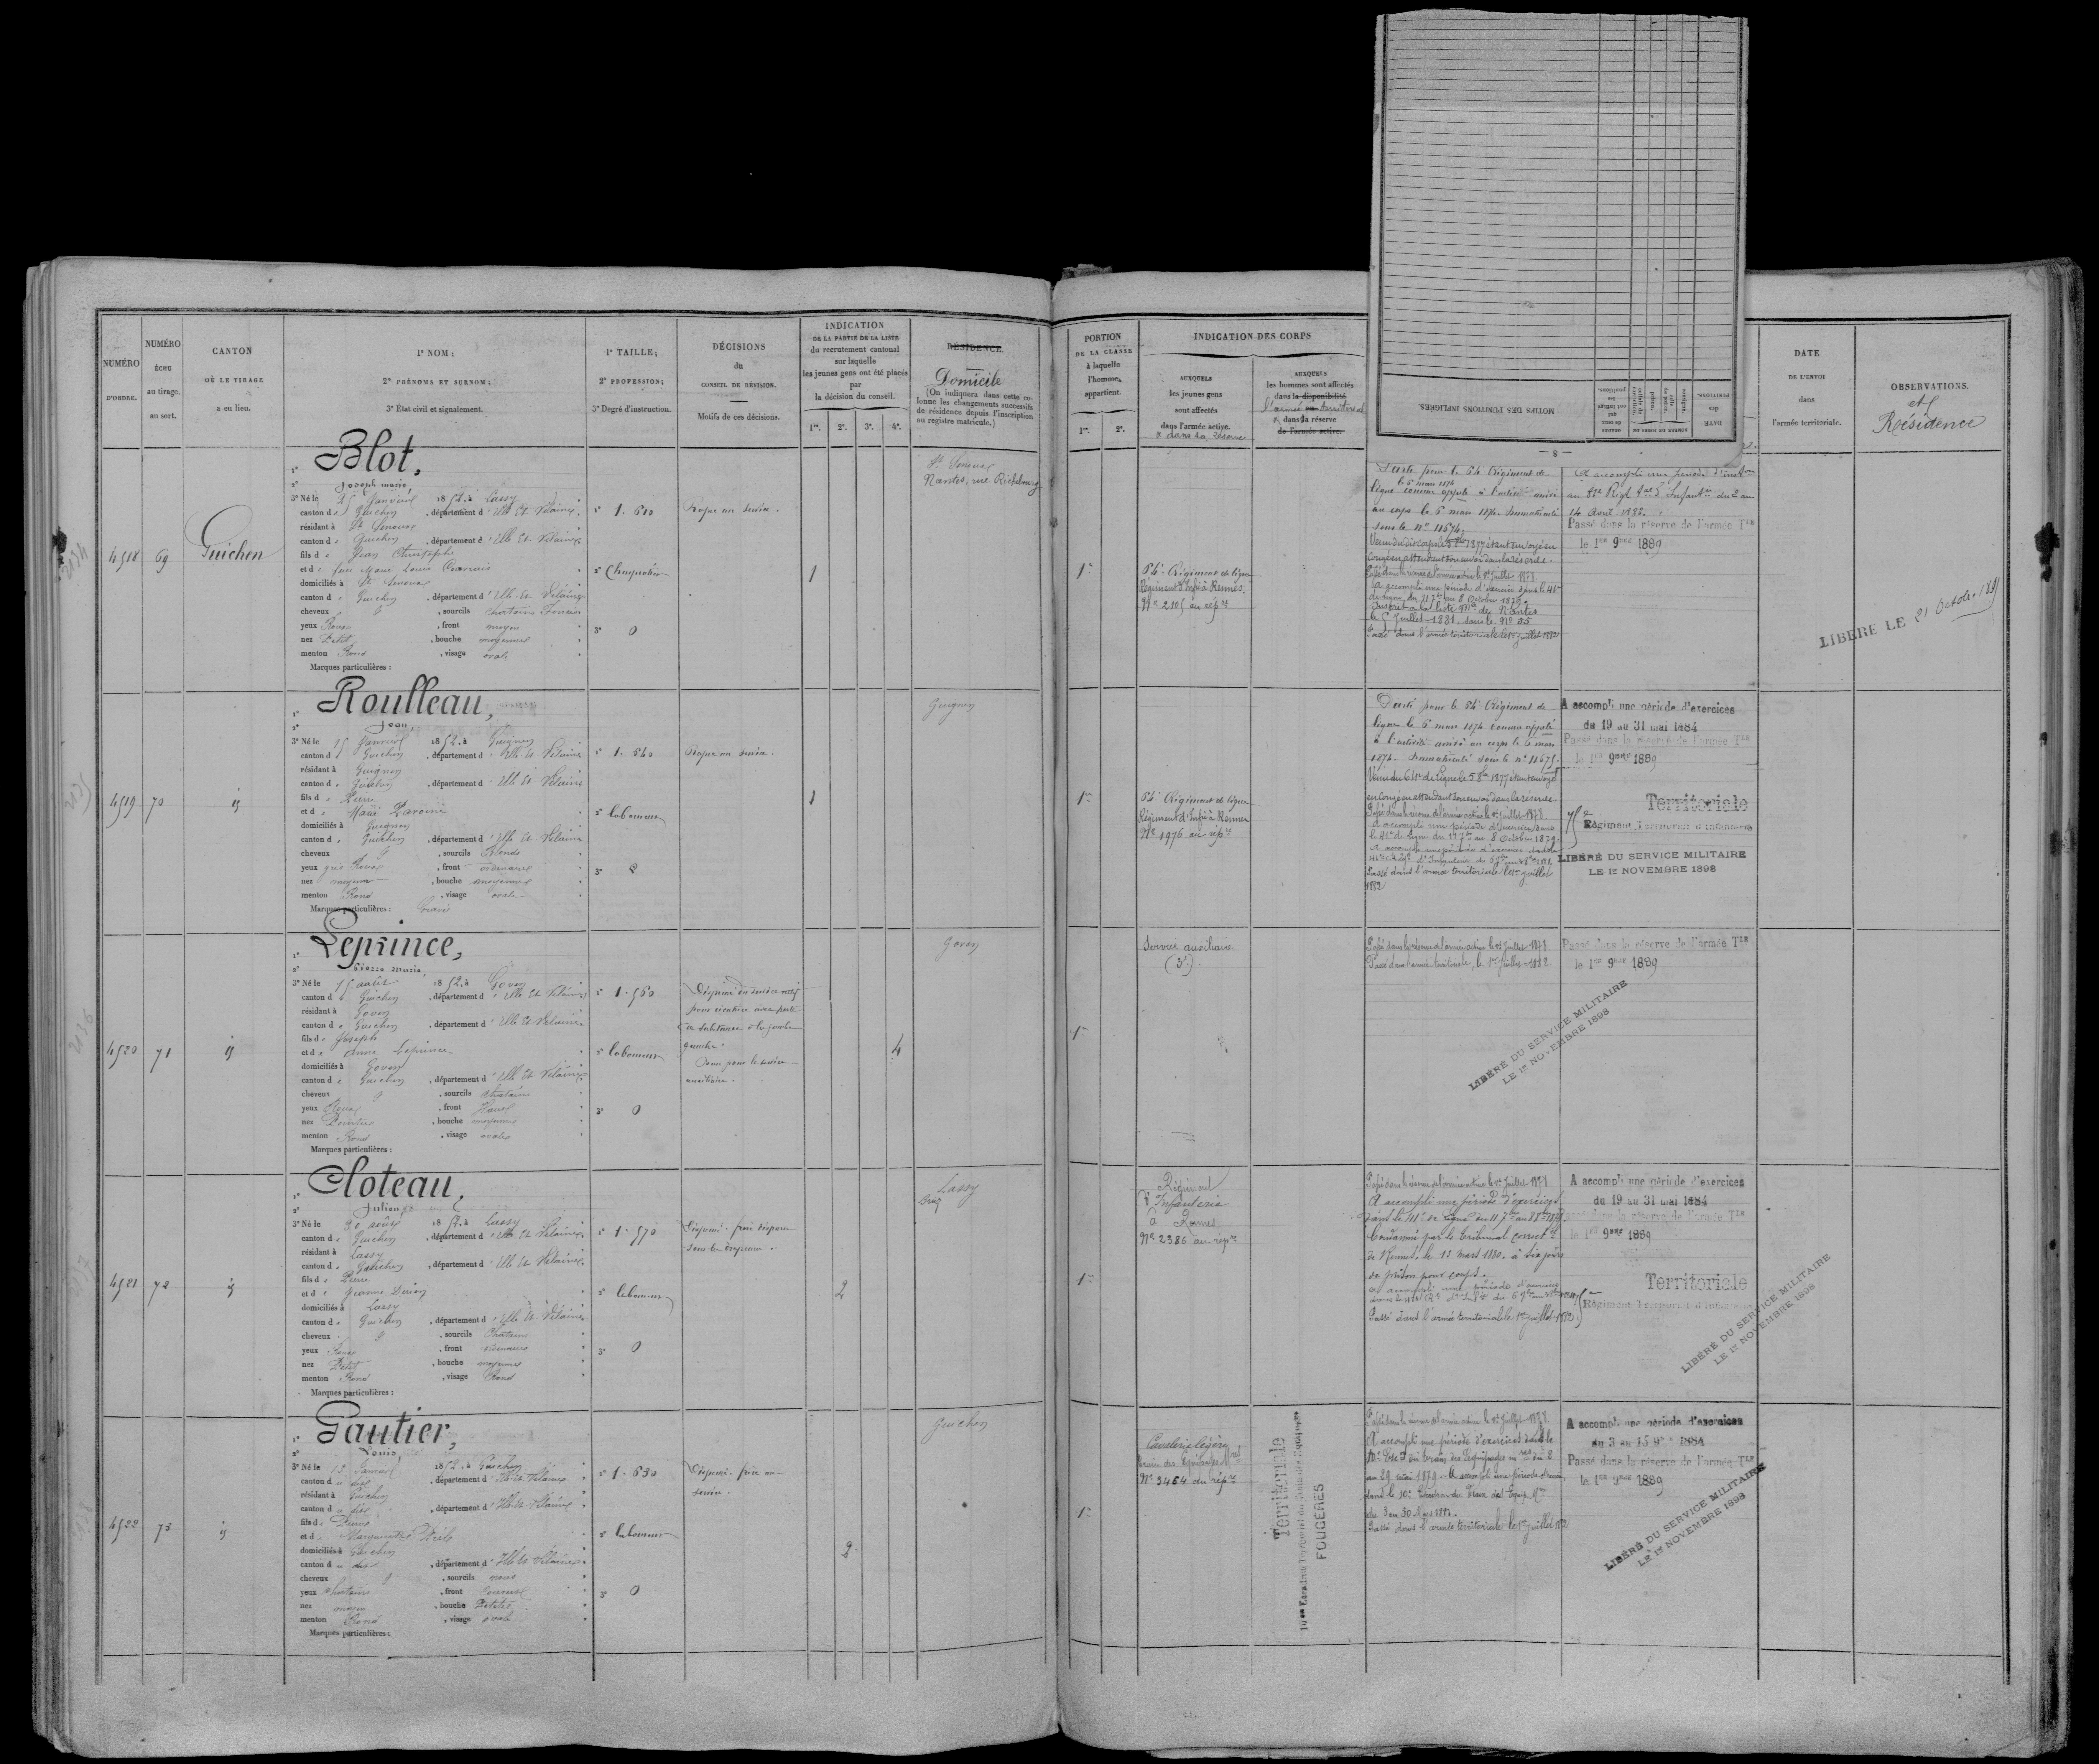 NUMÉRO
D'ORDRE.
NUMÉRO
ÉCHU
au tirage.
au sort.
CANTON
OÙ LE TIRAGE
a eu lieu.
1º NOM;
2º PRÉNOMS ET SURNOM;
3º État civil et signalement.
1º TAILLE;
2º PROFESSION;
3º Degré d'instruction.
DÉCISIONS
du
CONSEIL DE RÉVISION.
Motifs de ces décisions.
INDICATION
DE LA PARTIE DE LA LISTE
du recrutement cantonal
sur laquelle
les jeunes gens ont été placés
par
la décision du conseil.
1re. 2e. 3e. 4e.
RÉSIDENCE.
Domicile
(On indiquera dans cette co-
lonne les changements successifs
de résidence depuis l'inscription
au registre matricule.)
PORTION
DE LA CLASSE
à laquelle
l'homme
appartient.
1re. 2e.
INDICATION DES CORPS
AUXQUELS
les jeunes gens
sont affectés
dans l'armée active.
& dans la réserve
AUXQUELS
les hommes sont affectés
dans la disponibilité
l'armée territoriale
dans la réserve
de l'armée active.
MOTIFS DES POSITIONS INFLIGÉES.
DATE
DES
POSITIONS.
— 8 —
DATE
DE L'ENVOI
dans
l'armée territoriale.
OBSERVATIONS.
et
Résidence
4518
69
Guichen
1º Blot,
2º Joseph marie,
3º Né le 25 Janvier 1852, à Lassy
canton d Guichen, département d'Ille Et Vilaine
résidant à St Senoux
canton d Guichen, département d'Ille Et Vilaine
fils de Jean Christophe
domiciliés à St Senoux
canton d Guichen, département d'Ille Et Vilaine
cheveux & sourcils Chatains Foncés
yeux Roux, front moyen
nez Petit, bouche moyenne
menton Rond, visage ovale
Marques particulières :
1º 1.610
2º Charpentier
3º 0
Propre au service.
1
St Senoux
Nantes, rue Richebourg
1re
64e Régiment de ligne
Régiment d'Infie à Rennes.
Nº 2105 au répre
Parti pour le 64e Régiment de
ligne comme appelé à l'activité arrivé
le 6 mars 1874
au corps le 6 mars 1874. Immatriculé
sous le nº 11674.
congé en attendant son envoi dans la réserve.
Passé dans la réserve de l'armée active le 1er Juillet 1878.
A accompli une période d'exercice dans le 41e
de ligne du 11 7bre au 8 Octobre 1879.
le 5 Juillet 1881 sous le Nº 55
Passé dans l'armée territoriale le 1er juillet 1882
14 Avril 1882.
Passé dans la réserve de l'armée Tle
le 1er 9bre 1889
LIBÉRÉ LE 21 Octobre 1891
4519
70
id
1º Roulleau,
2º Jean,
3º Né le 15 Janvier 1852, à Guignen
canton d Guichen, département d'Ille Et Vilaine
résidant à Guignen
canton d Guichen, département d'Ille Et Vilaine
fils de Pierre
domiciliés à Guignen
canton d Guichen, département d'Ille Et Vilaine
cheveux & sourcils Blonds
yeux gris Roux, front ordinaire
nez moyen, bouche moyenne
menton Rond, visage ovale
Marques particulières : Gravé
1º 1.540
2º laboureur
Propre au service.
1
Guignen
1re
64e Régiment de ligne
Régiment d'Infie à Rennes
Nº 1976 au répre
Parti pour le 64e Régiment de
ligne le 6 mars 1874 comme appelé
à l'activité arrivé au corps le 6 mars
1874. Immatriculé sous le nº 11675.
en congé en attendant son envoi dans la réserve.
Passé dans la réserve de l'armée active le 1er Juillet 1878.
A accompli une période d'exercice dans
le 41e de ligne du 11 7bre au 8 Octobre 1879.
Passé dans l'armée territoriale le 1er juillet
1882
A accompli une période d'exercices
du 19 au 31 mai 1884
Passé dans la réserve de l'armée Tle
le 1er 9bre 1889
Territoriale
75e Régiment Territorial d'Infanterie
LIBÉRÉ DU SERVICE MILITAIRE
LE 1er NOVEMBRE 1898
4520
71
id
1º Leprince,
2º Pierre Marie,
3º Né le 15 août 1852, à Goven
canton d Guichen, département d'Ille Et Vilaine
résidant à Goven
canton d Guichen, département d'Ille Et Vilaine
fils de Joseph
et de Anne Leprince
domiciliés à Goven
canton d Guichen, département d'Ille Et Vilaine
cheveux & sourcils Chatains
yeux Roux, front Haut
nez Pointu, bouche moyenne
menton Rond, visage ovale
Marques particulières :
1º 1.560
2º laboureur
3º 0
Dispensé du service actif
pour cicatrice avec perte
de substance à la jambe
gauche.
Bon pour le service
auxiliaire.
4
Goven
1re
Service auxiliaire
(3e)
Passé dans la réserve de l'armée active le 1er Juillet 1878.
Passé dans l'armée territoriale, le 1er Juillet 1882.
Passé dans la réserve de l'armée Tle
le 1er 9bre 1889
LIBÉRÉ DU SERVICE MILITAIRE
LE 1er NOVEMBRE 1898
4521
72
id
1º Cloteau,
2º Julien,
3º Né le 30 août 1852, à Lassy
canton d Guichen, département d'Ille Et Vilaine
résidant à Lassy
canton d Guichen, département d'Ille Et Vilaine
fils de Pierre
et de Jeanne Derien
domiciliés à Lassy
canton d Guichen, département d'Ille Et Vilaine
cheveux & sourcils Chatains
yeux Roux, front ordinaire
nez Petit, bouche moyenne
menton Rond, visage Rond
Marques particulières :
1º 1.570
2º laboureur
3º 0
2
Lassy
1re
Régiment
d'Infanterie
à Rennes
Nº 2386 au répre
Passé dans la réserve de l'armée active le 1er Juillet 1878
A accompli une période d'exercices
dans le 41e de ligne du 11 7bre au 8 8bre 1879.
Condamné par le tribunal correct.
de Rennes, le 13 mars 1880, à six jours
de prison pour coups.
Passé dans l'armée territoriale le 1er juillet 1882
A accompli une période d'exercices
du 19 au 31 mai 1884
Passé dans la réserve de l'armée Tle
le 1er 9bre 1889
Territoriale
75e Régiment Territorial d'Infanterie
LIBÉRÉ DU SERVICE MILITAIRE
LE 1er NOVEMBRE 1898
4522
73
id
1º Gautier,
2º Louis,
3º Né le 13 Janvier 1852, à Guichen
canton d dit, département d'Ille et Vilaine
résidant à Guichen
canton d dit, département d'Ille et Vilaine
fils de Pierre
et de Marguerite
domiciliés à Guichen
canton d dit, département d'Ille et Vilaine
cheveux & sourcils noirs
yeux Chatains, front Couvert
nez moyen, bouche Petite
menton Rond, visage ovale
Marques particulières :
1º 1.630
2º laboureur
3º 0
2
Guichen
1re
Cavalerie légère
train des Equipages Mres
Nº 3464 du répre
Territoriale
10me Escadron Territorial du Train des Equipages
FOUGÈRES
Passé dans la réserve de l'armée active le 1er Juillet 1878.
A accompli une période d'exercices dans le
au 29 mai 1879. A accompli une période d'exercices
dans le 10e Escadron du Train des Equip. Mres
du 3 au 30 Mars 1881.
Passé dans l'armée territoriale le 1er juillet 1882
A accompli une période d'exercices
du 3 au 15 9bre 1884
Passé dans la réserve de l'armée Tle
le 1er 9bre 1889
LIBÉRÉ DU SERVICE MILITAIRE
LE 1er NOVEMBRE 1898